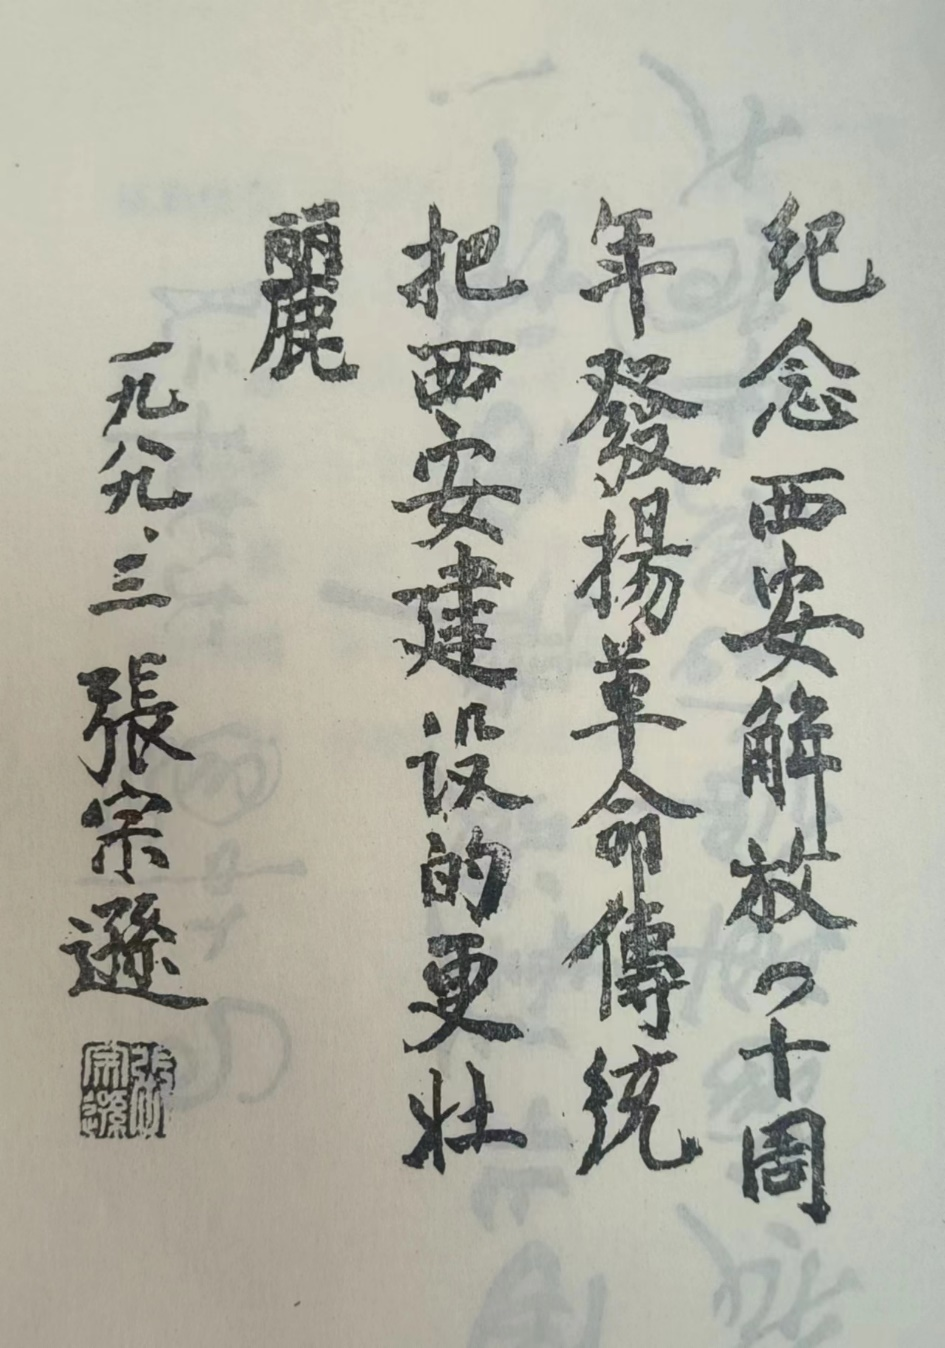 纪念西安解放四十周
年發揚革命傳統
把西安建设的更壮
麗
一九八九、三 張宗遜
張宗遜